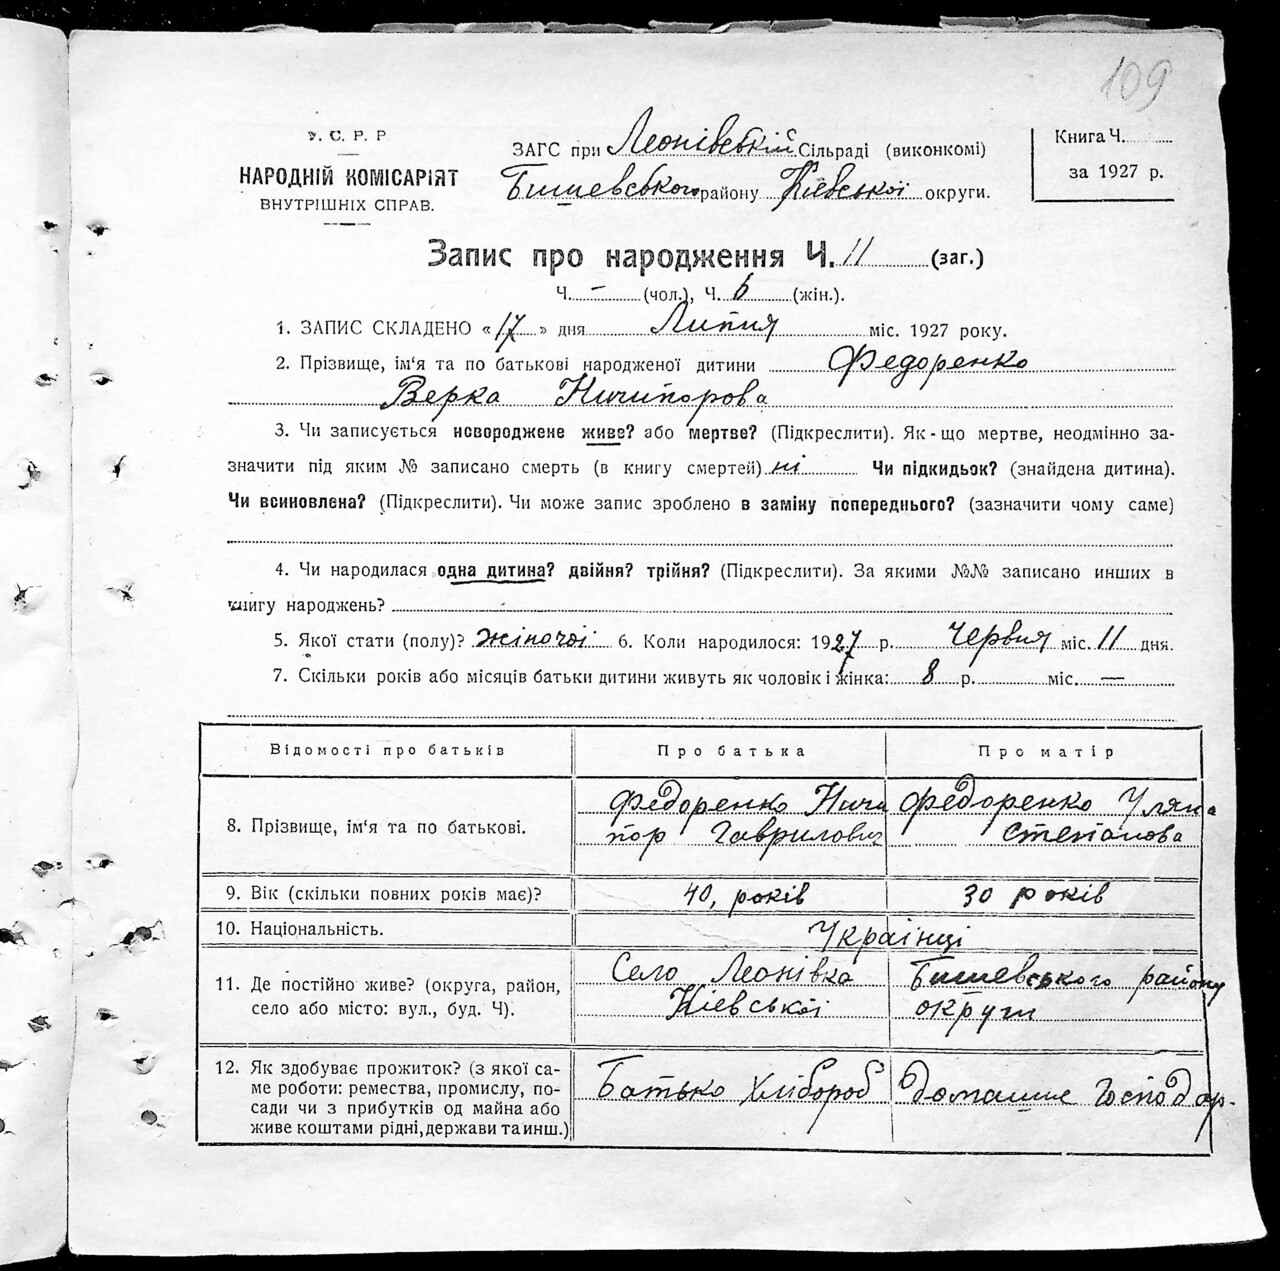 109
У. С. Р. Р
НАРОДНІЙ КОМІСАРІЯТ
ВНУТРІШНІХ СПРАВ.
ЗАГС при Леонівській Сільраді (виконкомі)
Бишевського району Київської округи.
Книга Ч.
за 1927 р.
Запис про народження Ч. 11 (заг.)
Ч. - (чол.), Ч. 6 (жін.).
1. ЗАПИС СКЛАДЕНО «17» дня Липня міс. 1927 року.
2. Прізвище, ім'я та по батькові народженої дитини Федоренко
Верка Ничипорова
3. Чи записується новороджене живе? або мертве? (Підкреслити). Як-що мертве, неодмінно за-
значити під яким № записано смерть (в книгу смертей) ні Чи підкидьок? (знайдена дитина).
Чи всиновлена? (Підкреслити). Чи може запис зроблено в заміну попереднього? (зазначити чому саме)
4. Чи народилася одна дитина? двійня? трійня? (Підкреслити). За якими №№ записано инших в
книгу народжень?
5. Якої стати (полу)? жіночої 6. Коли народилося: 1927 р. Червня міс. 11 дня.
7. Скільки років або місяців батьки дитини живуть як чоловік і жінка: 8 р. міс. —
Відомості про батьків Про батька Про матір
8. Прізвище, ім'я та по батькові. Федоренко Ничи Федоренко Уляна
пор Гаврилович Степанова
9. Вік (скільки повних років має)? 40, років 30 років
10. Національність. Українці
11. Де постійно живе? (округа, район, Село Леонівка Бишевського району
село або місто: вул., буд. Ч). Кіевської округи
12. Як здобуває прожиток? (з якої са-
ме роботи: ремества, промислу, по- Батько Хлібороб Домашнє Господар.
сади чи з прибутків од майна або
живе коштами рідні, держави та инш.)